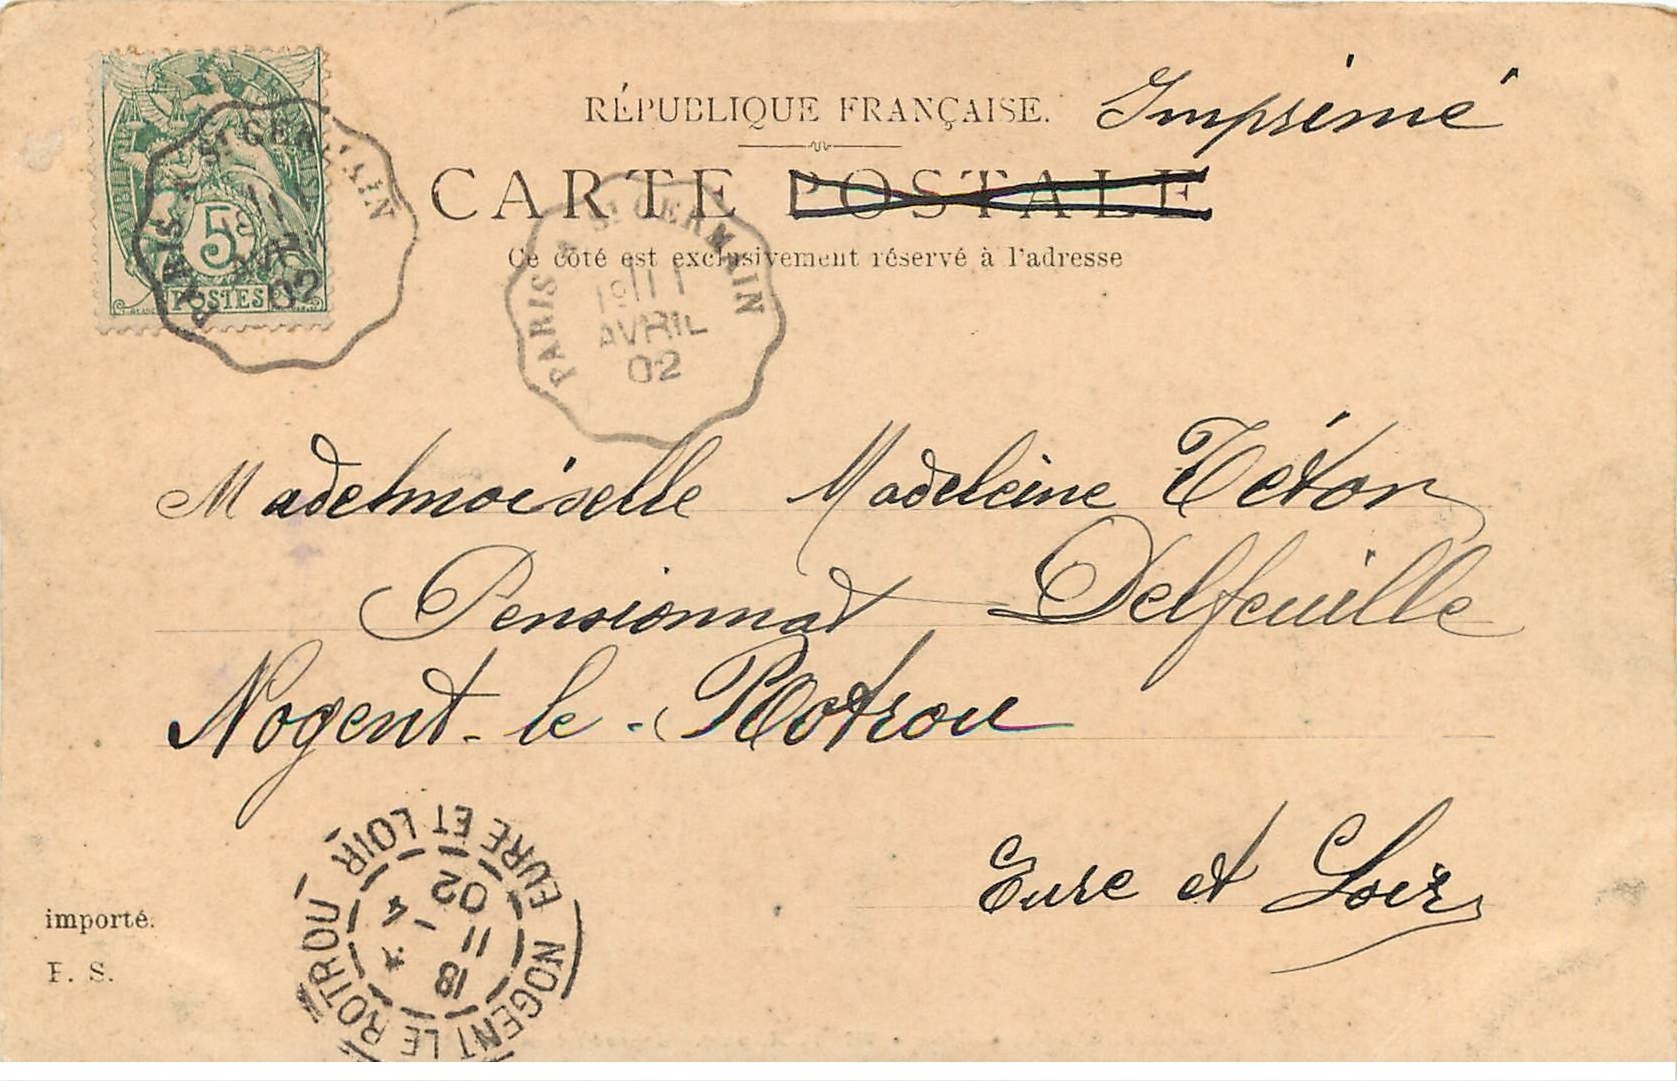 RÉPUBLIQUE FRANÇAISE. Imprimé
CARTE POSTALE
Ce côté est exclusivement réservé à l'adresse
5
POSTES
PARIS A St GERMAIN
AVRIL
02
PARIS A St GERMAIN
11
AVRIL
02
Mademoiselle Madeleine Tétar
Pensionnat Delfeuille
Nogent-le-Rotrou
Eure et Loir
NOGENT LE ROTROU
EURE ET LOIR
18
11 - 4
02
importé.
P. S.